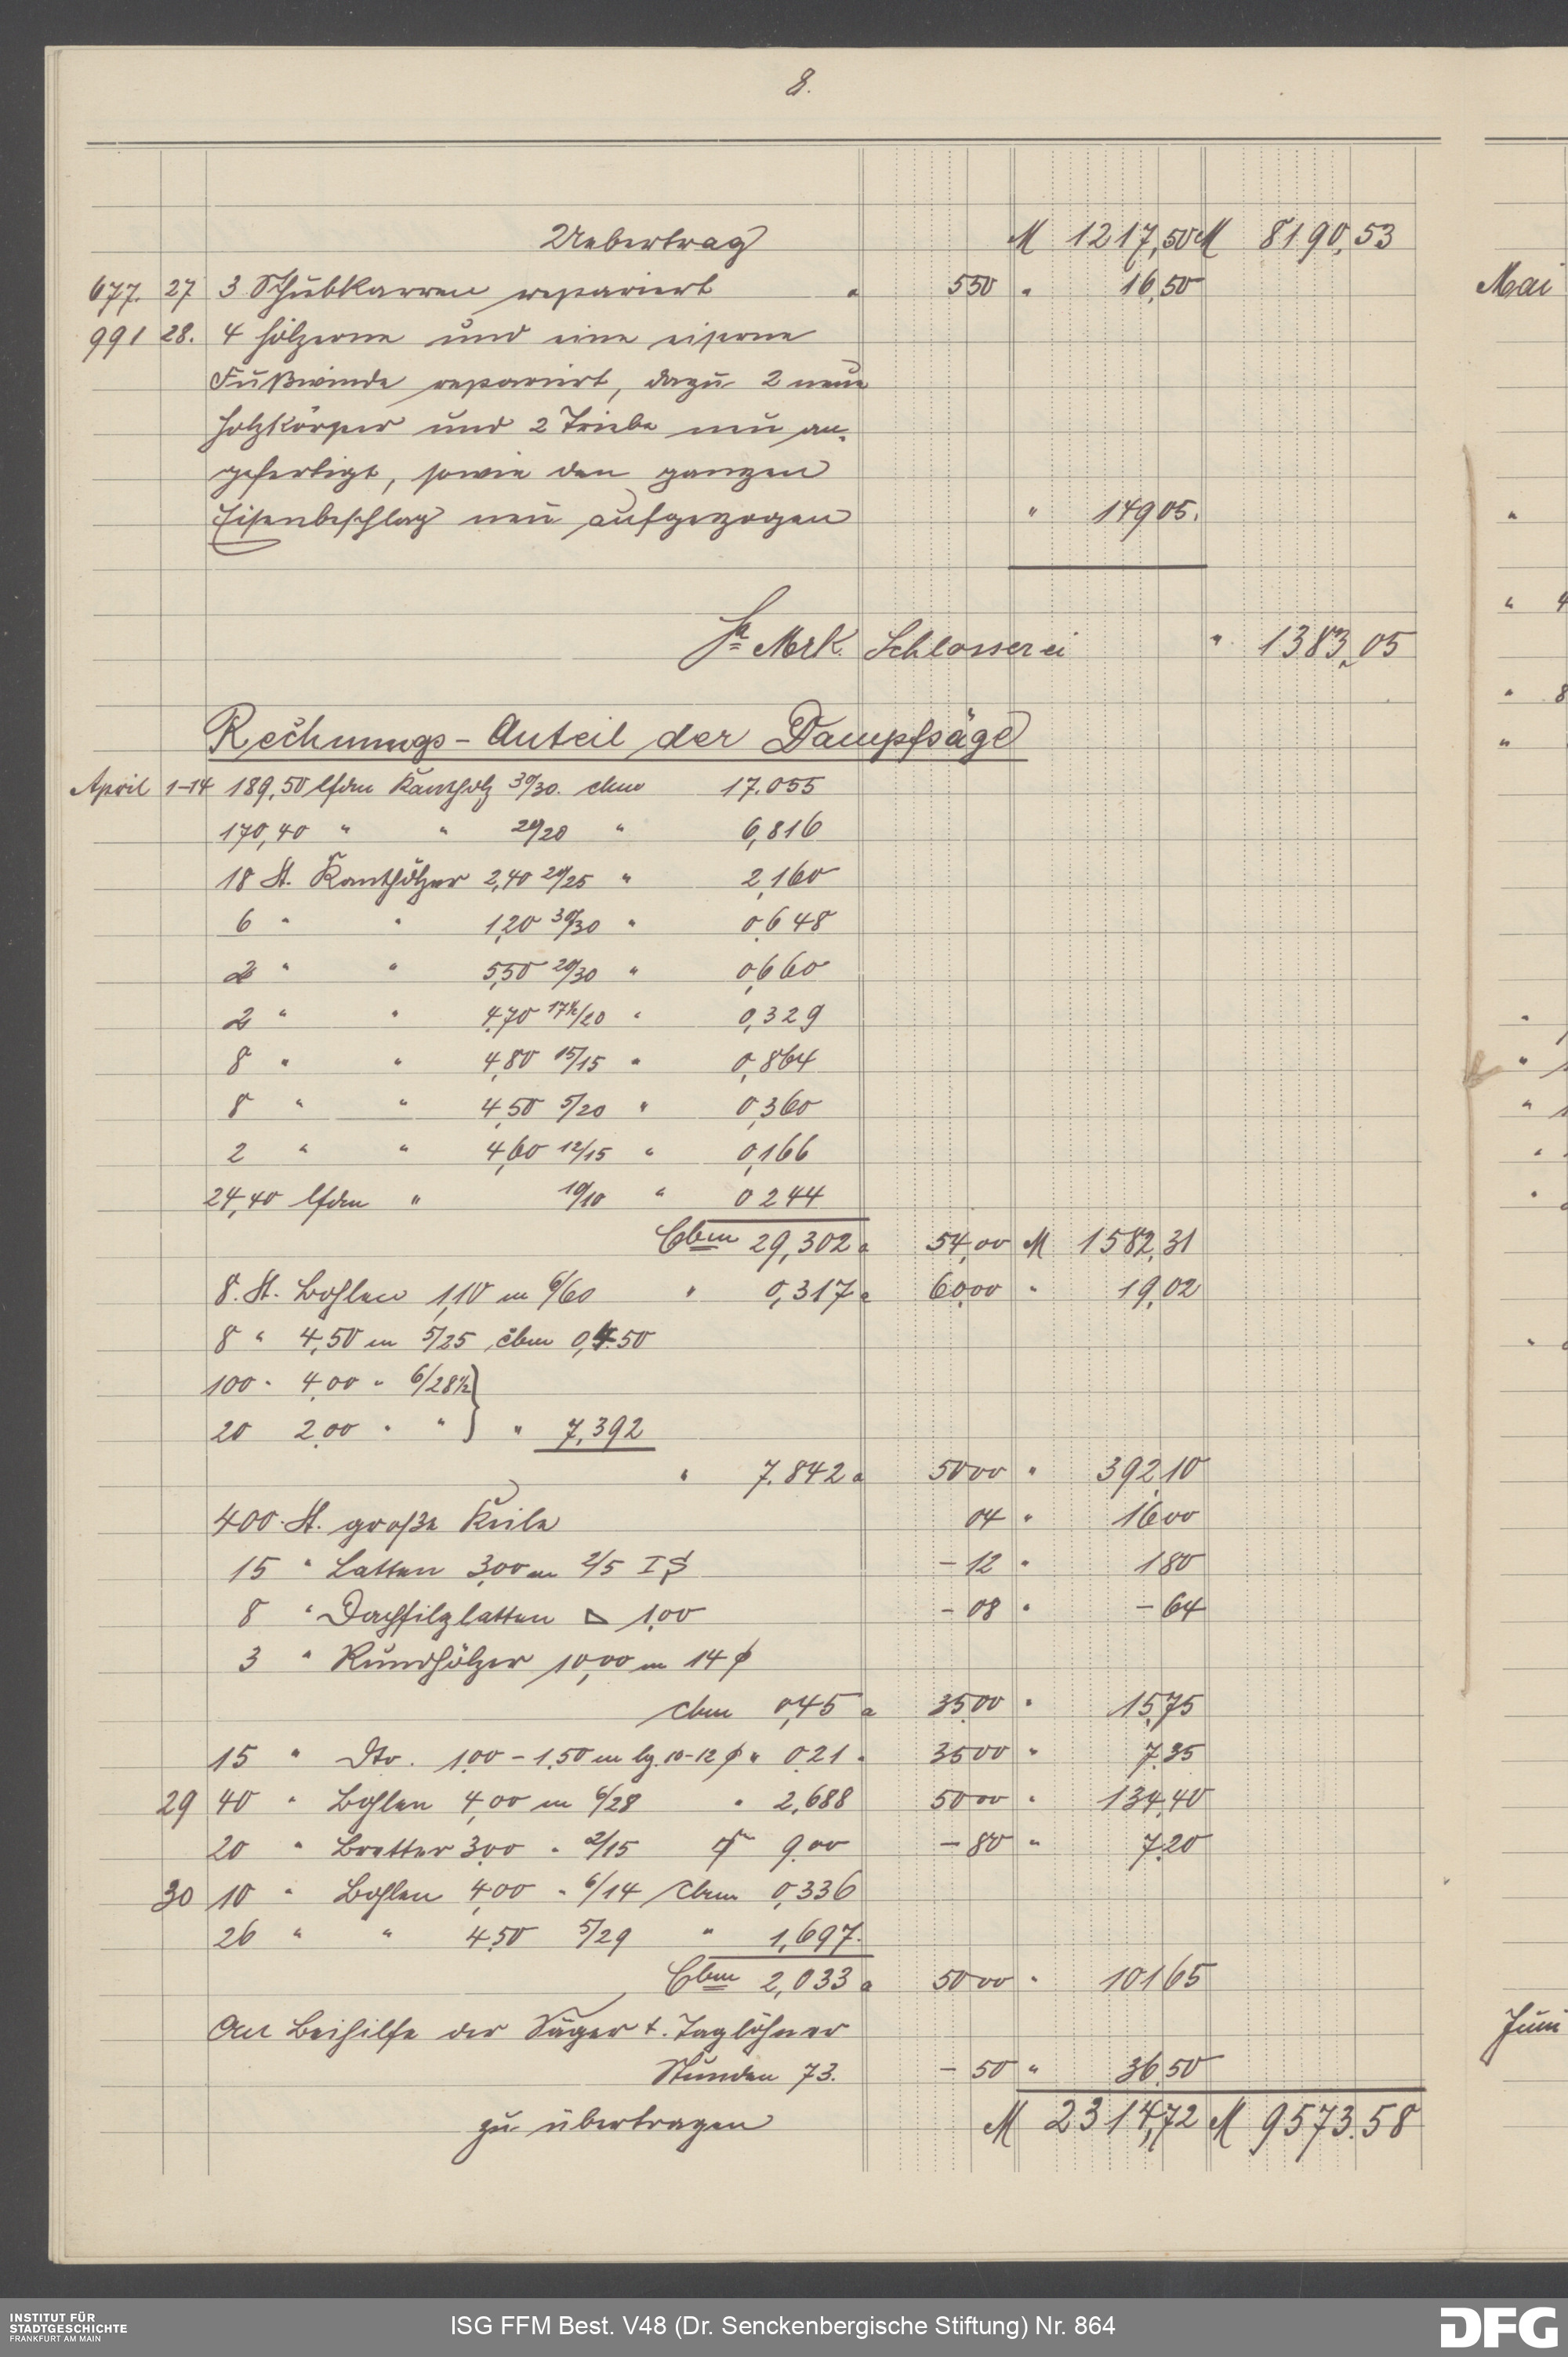 8.
Uebertrag M 1217,50 M 8190,53
677. 27 3 Schubkarren repariert a 550 " 16,50
991 28. 4 hölzerne und eine eiserne
Fußwinde repariert, dazu 2 neue
Holzkörper und 2 Triebe neu an-
gefertigt, sowie den ganzen
Eisenbeschlag neu aufgezogen " 149 05.
Sa Mrk. Schlosserei " 1383,05
Rechnungs-Anteil der Dampfsäge
April 1-14 189,50 lfdm Kantholz 30/30. cbm 17.055
170,40 " " 20/20 " 6,816
18 St. Kanthölzer 2,40 20/25 " 2,160
6 " " 1,20 30/30 " 0,648
2 " " 5,50 20/30 " 0,660
2 " " 4,70 17½/20 " 0,329
8 " " 4,80 15/15 " 0,864
8 " " 4,50 5/20 " 0,360
2 " " 4,60 12/15 " 0,166
24,40 lfdm " 10/10 " 0 244
Cbm 29,302 a 54,00 M 1582,31
8. St. Bohlen 1,10 m 6/60 " 0,317 a 60,00 " 19,02
8 " 4,50 m 5/25 cbm 0,450
100 " 4,00 " 6/28½ }
20 2,00 " " } " 7,392
" 7.842 a 5000 " 392,10
400 St. große Keile 04 " 1600
15 " Latten 3,00 m 2/5 I S - 12 " 180
8 " Dachfilzlatten ⊿ 1,00 - 08 " - 64
3 " Rundhölzer 10,00 m 14 ϕ
cbm 0,45 a 3500 " 15,75
15 " Dto. 1,00 - 1,50 m lg. 10-12 ϕ " 0,21 " 3500 " 7,35
29 40 " Bohlen 4,00 m 6/28 " 2,688 5000 " 134,40
20 " Bretter 3,00 " 2/15 qm 9,00 - 80 " 7,20
30 10 " Bohlen 4,00 " 6/14 cbm 0,336
26 " " 4,50 5/29 " 1,697.
Cbm 2,033 a 5000 " 101 65
An Beihilfe der Säger & Taglöhner
Stunden 73. - 50 " 36,50
zu übertragen M 2314,72 M 9573.58
Mai
" 4
" 8
Juni
INSTITUT FÜR
STADTGESCHICHTE
FRANKFURT AM MAIN
ISG FFM Best. V48 (Dr. Senckenbergische Stiftung) Nr. 864
DFG